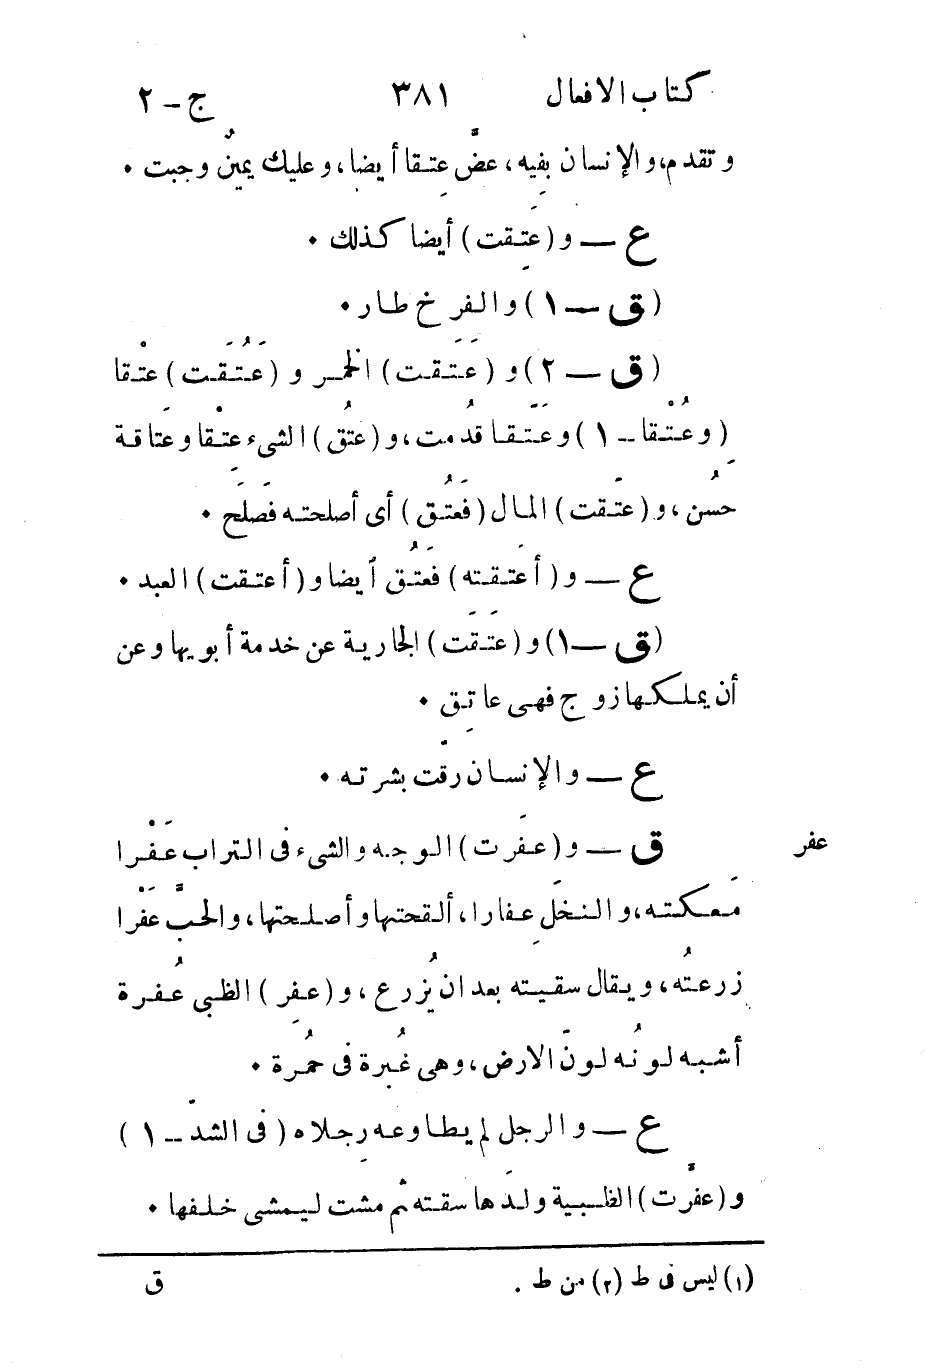 كتاب الافعال ٣٨١ ج - ٢
وتقدم، والإنسان بفيه، عضَّ عتقا أيضا، وعليك يمينٌ وجبت ٠
ع — و (عَتِقت) أيضا كذلك ٠
(ق — ١) والفرخ طار ٠
(ق — ٢) و (عَتَقت) الخمر و (عَتُقَت) عتْقا
(وعُتْقا - ١) وعَتَّقا قدُمت، و (عتُق) الشىء عتْقا وعَتاقة
حسُن، و (عتَقت) المال (فعَتُق) أى أصلحته فصَلَح ٠
ع — و (أعتَقته) فعَتُق أيضا و (أعتقت) العبد ٠
(ق — ١) و (عَتَقَت) الجارية عن خدمة أبويها وعن
أن يملكها زوج فهى عاتِق ٠
ع — والإنسان رقّت بشرته ٠
عفر ق — و (عفَرت) الوجه والشىء فى التراب عَفْرا
مَعكته، والنخلَ عِفارا، ألقحتها وأصلحتها، والحبَّ عَفْرا
زرعتُه، ويقال سقيته بعد ان يُزرع، و (عفِر) الظبي عُفرة
أشبه لونُه لونَ الارض، وهى غُبرة فى حمُرة ٠
ع — والرجل لم يطاوعه رِجلاه (فى الشدّ - ١)
و (عفَّرت) الظبية ولدَها سقته ثم مشت ليمشى خلفها ٠
(١) ليس فى ط (٢) من ط .
ق